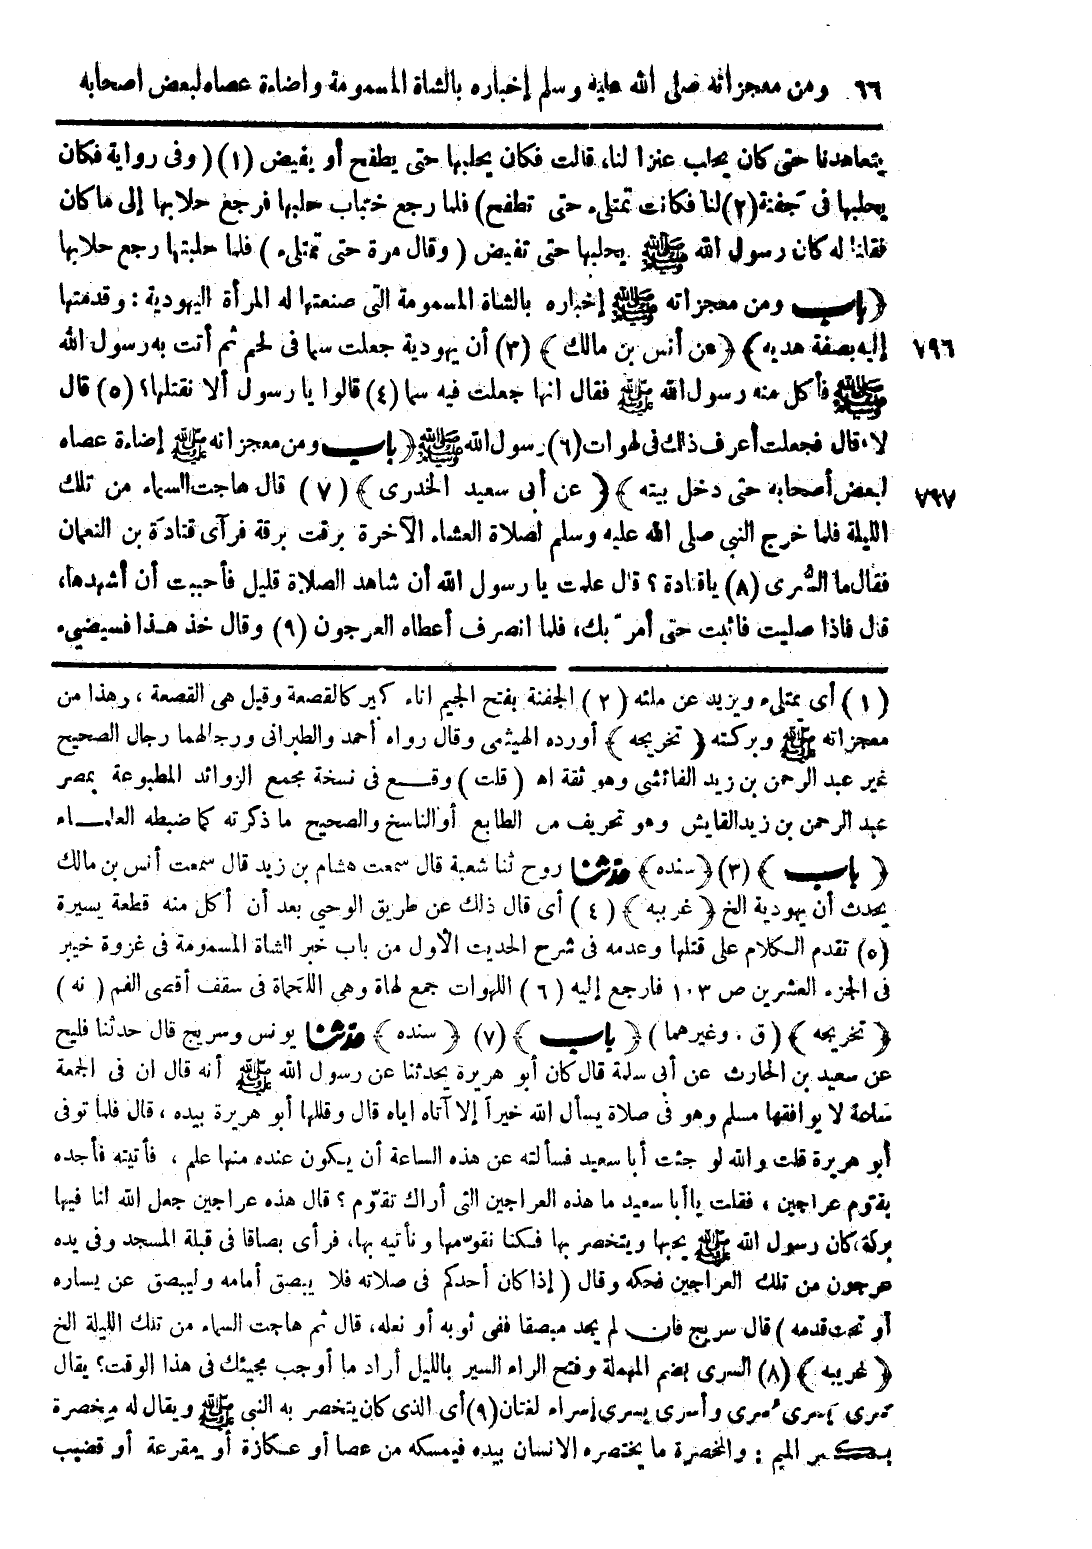 ٦٦ ومن معجزاته صلى الله عليه وسلم إخباره بالشاة المسمومة واضاءة عصاه لبعض اصحابه
يتعاهدنا حتى كان يحلب عنزا لنا، قالت فكان يحلبها حتى يطفح أو يفيض (١) ( وفى رواية فكان
يحلبها فى جفنة(٢)لنا فكانت تمتلىء حتى تطفح) فلما رجع خباب حلبها فرجع حلابها إلى ما كان
فقلنا له كان رسول الله ﷺ يحلبها حتى تفيض ( وقال مرة حتى تمتلىء ) فلما حلبتها رجع حلابها
﴿باب ومن معجزاته ﷺ إخباره بالشاة المسمومة التى صنعتها له المرأة اليهودية : وقدمتها
٧٩٦ إليه بصفة هدية﴾ ﴿عن أنس بن مالك ﴾ (٣) أن يهودية جعلت سما فى لحم ثم أتت به رسول الله
ﷺ فأكل منه رسول الله ﷺ فقال انها جعلت فيه سما (٤) قالوا يا رسول ألا نقتلها؟ (٥) قال
لا، قال فجعلت أعرف ذلك فى لهوات (٦) رسول الله ﷺ ﴿باب ومن معجزاته ﷺ إضاءة عصاه
٧٩٧ لبعض أصحابه حتى دخل بيته ﴾ ﴿ عن أبى سعيد الخدرى ﴾ (٧) قال هاجت السماء من تلك
الليلة فلما خرج النبي صلى الله عليه وسلم لصلاة العشاء الآخرة برقت برقة فرآى قتادة بن النعمان
فقال ما السُّرى (٨) ياقتادة ؟ قال علمت يا رسول الله أن شاهد الصلاة قليل فأحببت أن أشهدها،
قال فاذا صليت فاثبت حتى أمر بك، فلما انصرف أعطاه العرجون (٩) وقال خذ هذا فسيضىء
(١) أى يمتلىء ويزيد عن ملئه (٢) الجفنة بفتح الجيم اناء كبير كالقصعة وقيل هى القصعة ، وهذا من
معجزاته ﷺ وبركته ﴿ تخريجه ﴾ أورده الهيثمى وقال رواه أحمد والطبرانى ورجالهما رجال الصحيح
غير عبد الرحمن بن زيد الفائشى وهو ثقة اه ( قلت ) وقع فى نسخة مجمع الزوائد المطبوعة بمصر
عبد الرحمن بن زيد القايش وهو تحريف من الطابع أو الناسخ والصحيح ما ذكرته كما ضبطه العلماء
﴿ باب ﴾ (٣) ﴿سنده﴾ حدثنا روح ثنا شعبة قال سمعت هشام بن زيد قال سمعت أنس بن مالك
يحدث أن يهودية الخ ﴿ غريبه ﴾ (٤) أى قال ذلك عن طريق الوحي بعد أن أكل منه قطعة يسيرة
(٥) تقدم الكلام على قتلها وعدمه فى شرح الحديث الأول من باب خبر الشاة المسمومة فى غزوة خيبر
فى الجزء العشرين ص ١٠٣ فارجع إليه (٦) اللهوات جمع لهاة وهى اللحماة فى سقف أقصى الفم ( نه )
﴿ تخريجه ﴾ (ق . وغيرهما) ﴿ باب ﴾ (٧) ﴿ سنده ﴾ حدثنا يونس وسريج قال حدثنا فليح
عن سعيد بن الحارث عن أبى سلمة قال كان أبو هريرة يحدثنا عن رسول الله ﷺ أنه قال ان فى الجمعة
ساعة لا يوافقها مسلم وهو فى صلاة يسأل الله خيراً إلا آتاه اياه قال وقللها أبو هريرة بيده ، قال فلما توفى
أبو هريرة قلت والله لو جئت أبا سعيد فسألته عن هذه الساعة أن يكون عنده منها علم ، فأتيته فأجده
يقوّم عراجين ، فقلت يا أبا سعيد ما هذه العراجين التى أراك تقوّم ؟ قال هذه عراجين جعل الله لنا فيها
بركة،كان رسول الله ﷺ يحبها ويتخصر بها فكنا نقوّمها ونأتيه بها، فرأى بصاقا فى قبلة المسجد وفى يده
عرجون من تلك العراجين فحكه وقال ( إذا كان أحدكم فى صلاته فلا يبصق أمامه وليبصق عن يساره
أو تحت قدمه ) قال سريج فان لم يجد مبصقا ففى ثوبه أو نعله، قال ثم هاجت السماء من تلك الليلة الخ
﴿ غريبه ﴾ (٨) السرى بضم المهملة وفتح الراء السير بالليل أراد ما أوجب مجيئك فى هذا الوقت؟ يقال
سرى يسرى سرى وأسرى يسرى إسراء لغتان(٩)أى الذى كان يتخصر به النبى ﷺ ويقال له مخصرة
بكسر الميم : والمخصرة ما يختصره الانسان بيده فيمسكه من عصا أو عكازة أو مقرعة أو قضيب